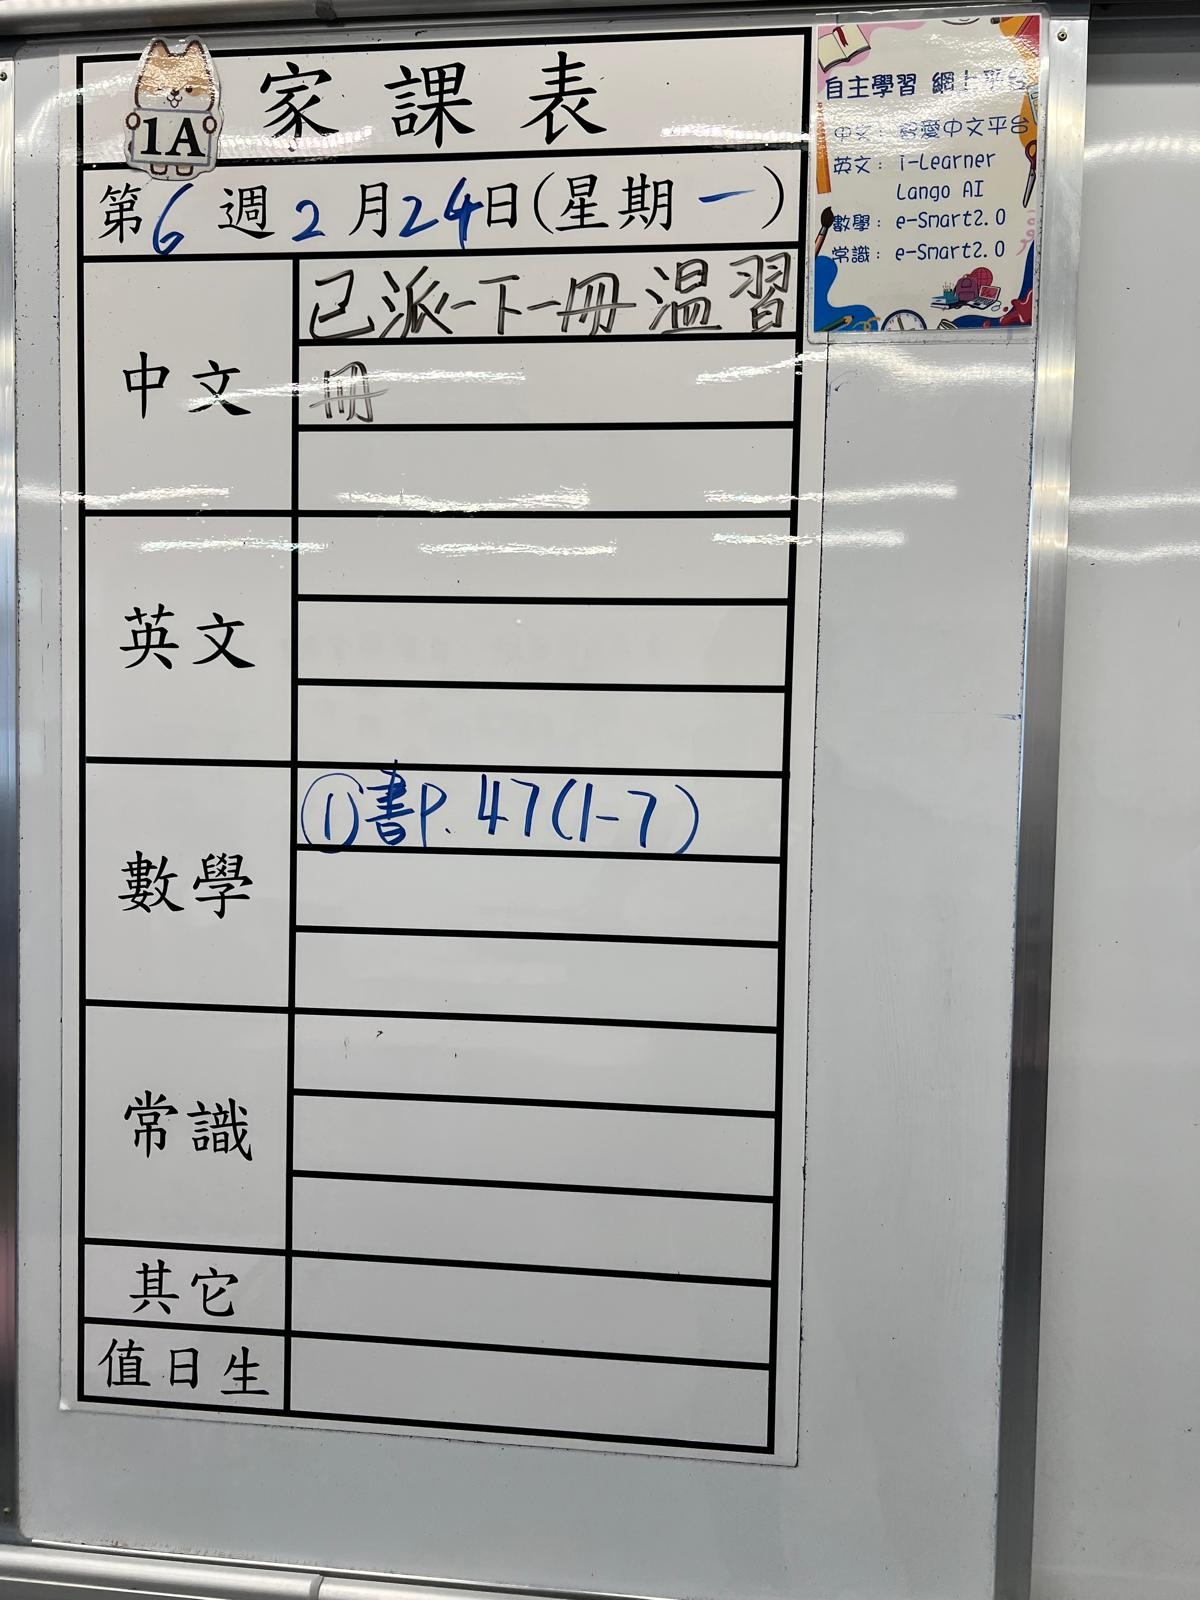 1A
家課表
第6週2月24日(星期一)
中文
已派一下一冊温習
冊
英文
數學
①書P.47(1-7)
常識
其它
值日生
自主學習 網上平台
中文：愛中文平台
英文：i-Learner
Lango AI
數學：e-Smart2.0
常識：e-Smart2.0